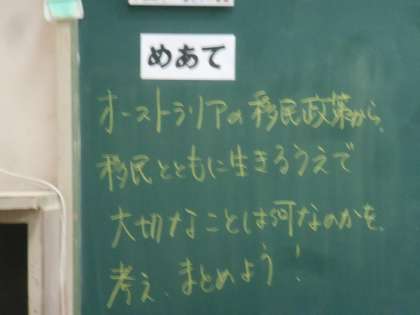 めあて
オーストラリアの移民政策から、
移民とともに生きるうえで
大切なことは何なのかを、
考え、まとめよう！